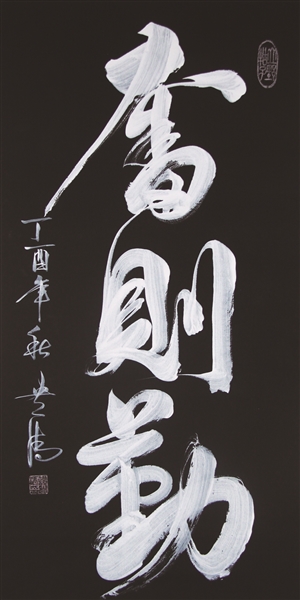 奮則勤
丁酉年秋